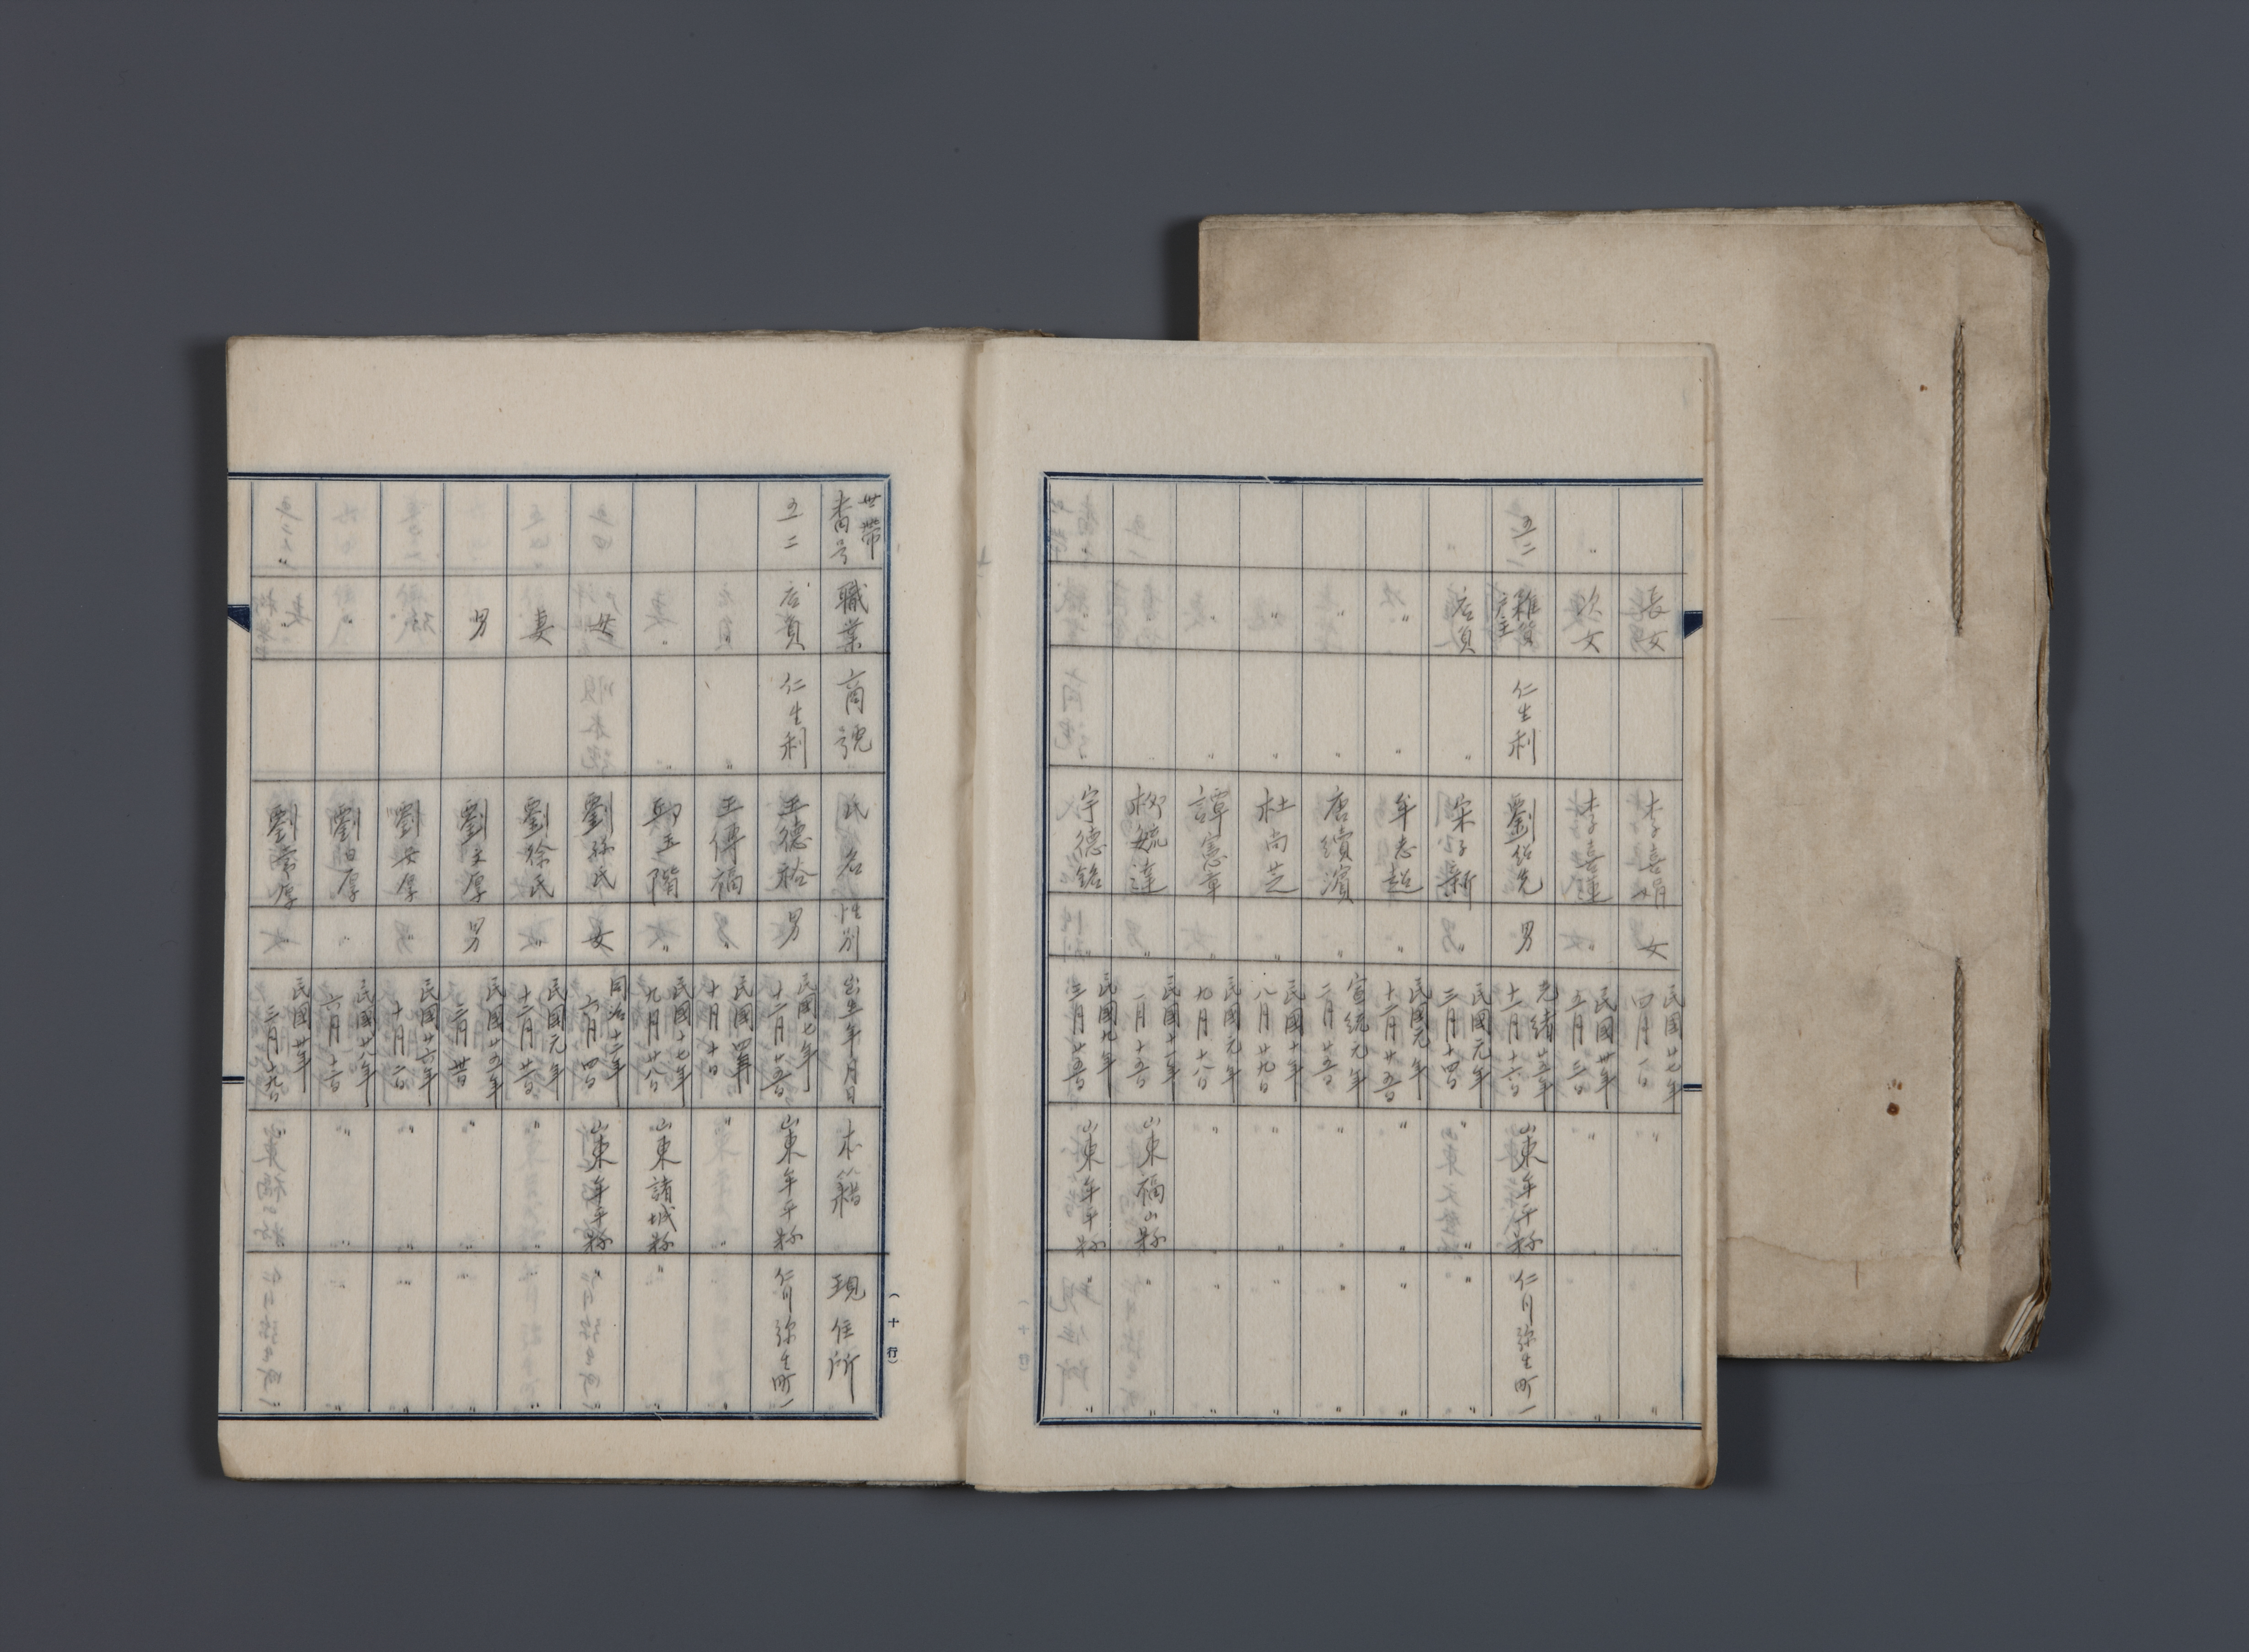 長女 李喜娟 女 民國廿七年四月一日 〃 〃 〃
〃 次女 李喜蓮 〃 民國卅年五月三日 〃 〃
五二 雜貨店主 仁生利 劉紹先 男 光緒廿五年十一月十六日 山東牟平縣 仁川弥生町一
〃 店員 〃 宋子新 〃 民國元年三月十四日 〃 〃 〃 〃
〃 〃 牟志超 〃 民國元年十二月廿五日 〃 〃 〃 〃
〃 〃 唐續濱 〃 宣統元年二月廿五日 〃 〃 〃 〃
〃 〃 杜尚芝 〃 民國十年八月廿九日 〃 〃 〃 〃
〃 〃 譚憲章 〃 民國元年九月十八日 〃 〃 〃 〃
〃 〃 柳毓達 〃 民國十一年一月十五日 山東福山縣 〃 〃
〃 〃 宇德銘 〃 民國九年三月廿五日 山東牟平縣 〃 〃
世帶番号 職業 商號 氏名 性別 出生年月日 本籍 現住所
五二 店員 仁生利 王德裕 男 民國七年十二月廿五日 山東牟平縣 仁川弥生町一
〃 〃 王傳福 〃 民國四年十月十日 〃 〃
〃 〃 邱玉階 〃 民國十七年九月廿八日 山東諸城縣 〃 〃
母 劉孫氏 女 同治十二年六月四日 山東牟平縣 〃
妻 劉徐氏 〃 民國元年十二月廿日 〃 〃 〃
男 劉文厚 男 民國廿五年三月廿日 〃 〃 〃 〃
〃 劉安厚 〃 民國廿六年十月二日 〃 〃 〃 〃
〃 劉日厚 〃 民國廿八年六月十二日 〃 〃 〃 〃
〃 〃 劉常厚 〃 民國卅年三月十九日 〃 〃 〃
(十行)